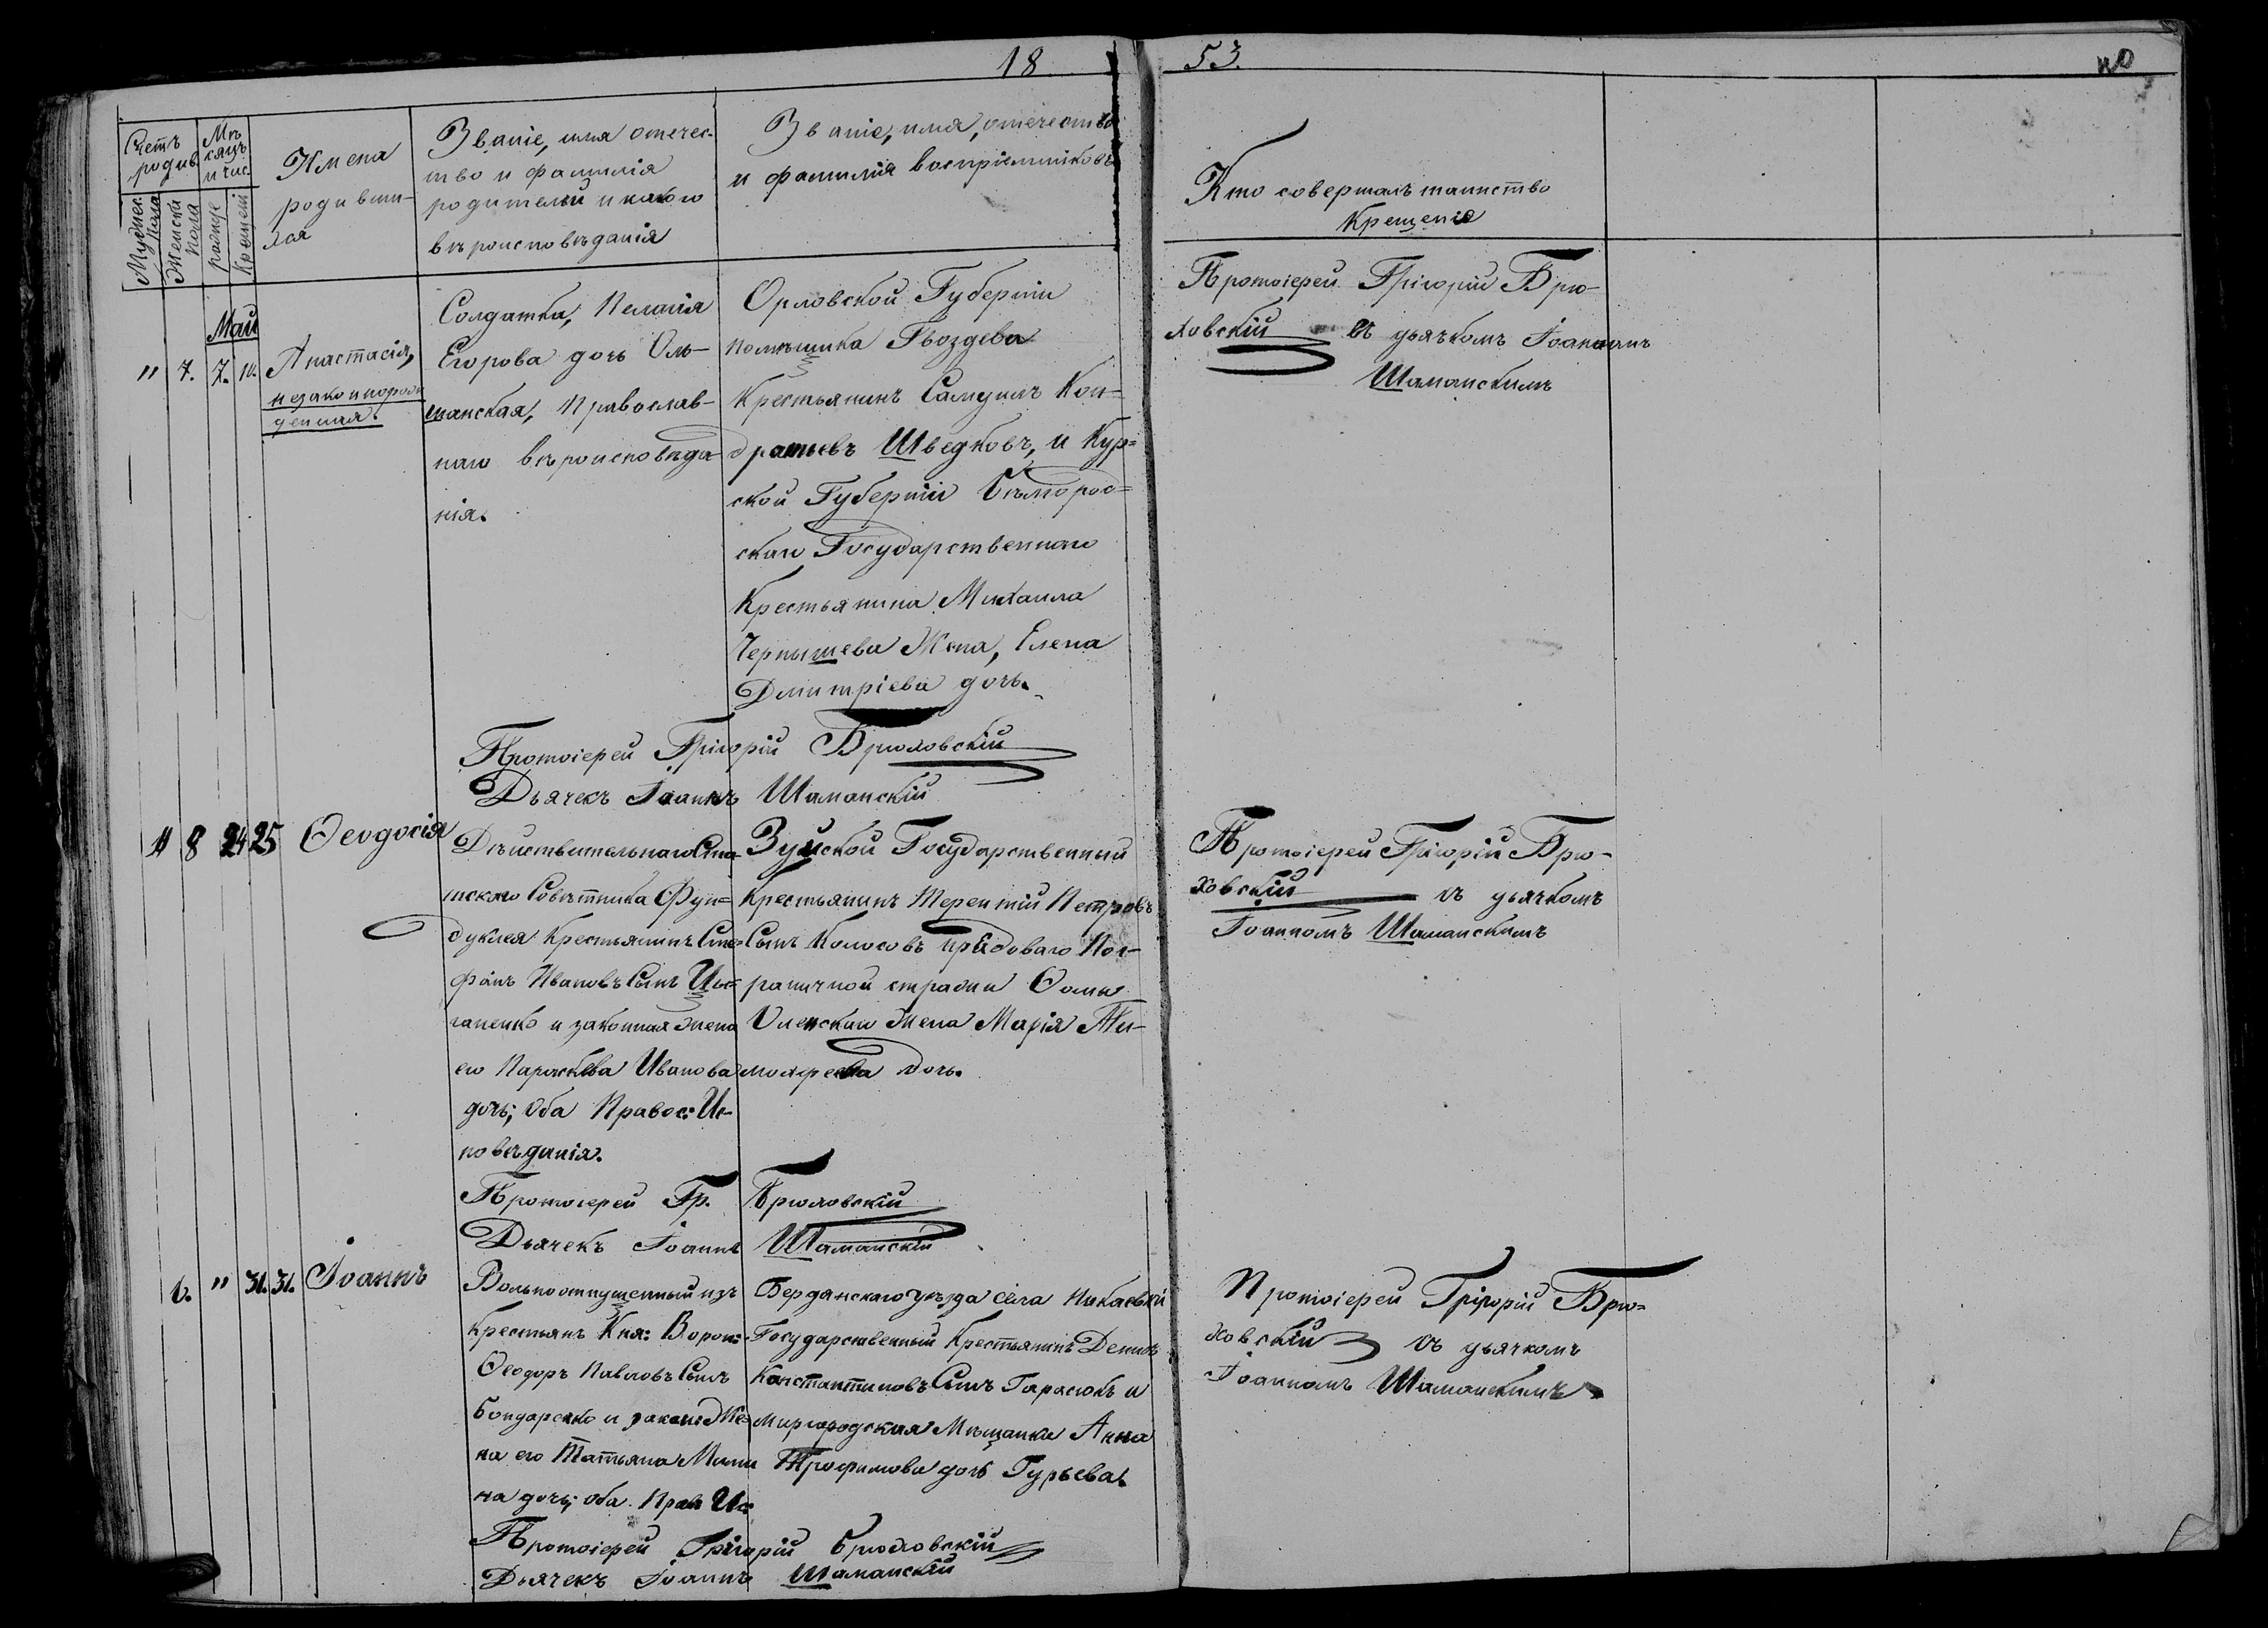 18
53.
Счетъ родив.
Мѣсяцъ и чис.
Мужеск. пола
Женска пола
рожде
Крещенi
Имена
родивши-
хся
Званіе, имя отечес-
тво и фамилія
родителей и какого
вѣроисповѣданія
Званіе, имя, отечество
и фамилія воспріемниковъ
Кто совершалъ таинство
Крещенія
Май
" 7. 7. 10.
Анастасія,
незаконнорож
денная.
Солдатка, Пелагія
Егорова дочь Оль-
шанская, Православ-
наго вѣроисповѣда-
нія.
Орловской Губерніи
помѣщика Гвоздева
Крестьянинъ Самуилъ Кон=
дратьевъ Шведковъ, и Кур=
ской Губерніи Бѣлгород=
скаго Государственнаго
Крестьянина Михаила
Чернышева Жена, Елена
Дмитріева дочь.
Протоіерей Григорій Брю-
ховскій съ дьячкомъ Іоанномъ
Шаманскимъ
Протоіерей Григорій Брюховскій
Дьячекъ Іоаннъ Шаманскій
" 8 24 25 Ѳеодосія
Дѣйствительнаго Ста-
тскаго Совѣтника Фун=
дуклея Крестьянинъ Сте=
фанъ Ивановъ Сынъ Цы=
ганенко и законная жена
его Параскева Иванова
дочь; оба Правос: Ис-
повѣданія.
Зуйской Государственный
Крестьянинъ Терентій Петровъ
Сынъ Колосовъ и рядоваго Пог-
раничной стражи Ѳомы
жена Марія Ти-
моѳеева дочь.
Протоіерей Григорій Брю-
ховскій съ дьячкомъ
Іоанномъ Шаманскимъ
Протоіерей Гр. Брюховскій
Дьячекъ Іоаннъ Шаманскій
6. " 31. 31. Іоаннъ
Вольноотпущенный изъ
Крестьянъ Кня: Ворон:
Ѳеодоръ Павловъ Сынъ
Бондаренко и закон: Же-
на его Татьяна Мини
на дочь; оба Прав Ис:
Бердянскаго уѣзда села
Государственный Крестьянинъ Денисъ
Константиновъ Сынъ Гарасюкъ и
Миргородская Мѣщанка Анна
Трофимова дочь Гурьева.
Протоіерей Григорій Брю=
ховскій съ дьячкомъ
Іоанномъ Шаманскимъ
Протоіерей Григорій Брюховскій
Дьячекъ Іоаннъ Шаманскій